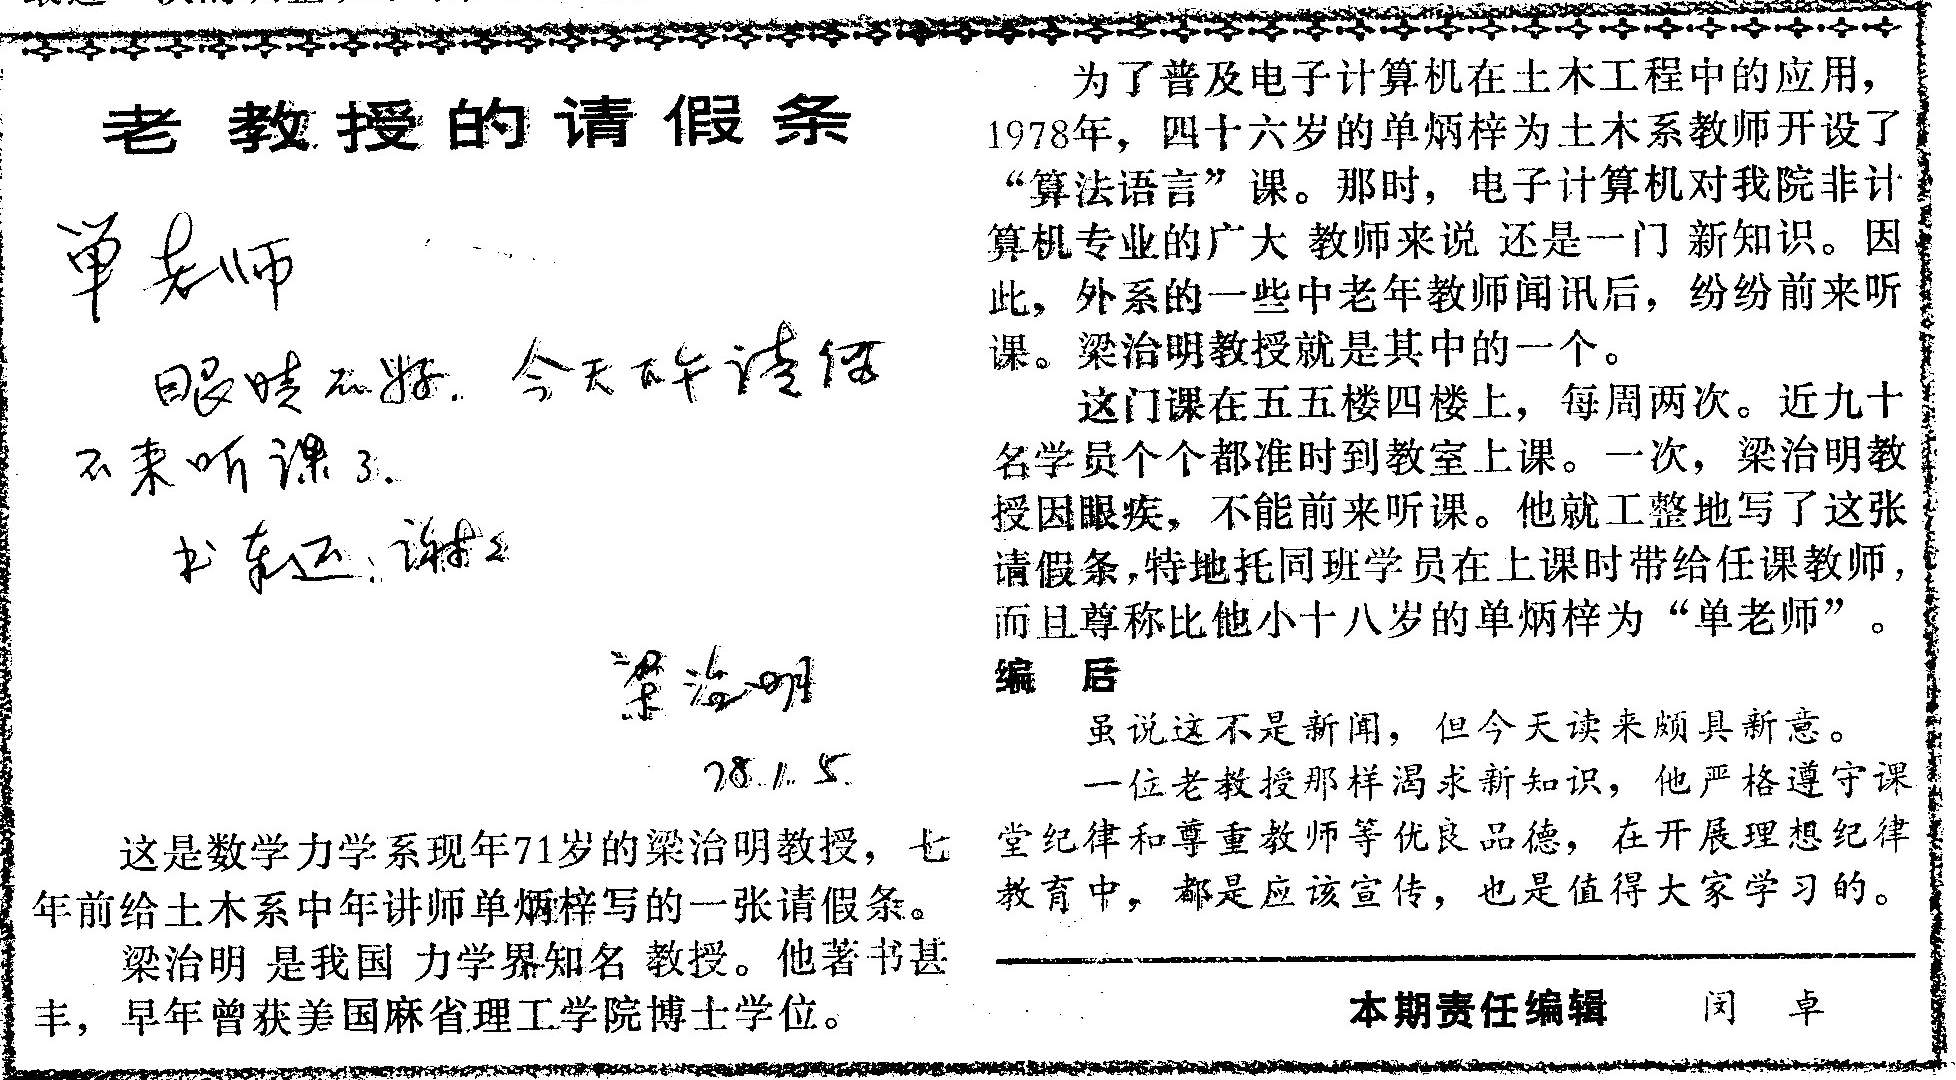 老教授的请假条
单老师
眼睛不好．今天下午请假
不来听课了．
书奉还．谢谢
梁治明
78.1.5.
这是数学力学系现年71岁的梁治明教授，七
年前给土木系中年讲师单炳梓写的一张请假条。
梁治明是我国力学界知名教授。他著书甚
丰，早年曾获美国麻省理工学院博士学位。
为了普及电子计算机在土木工程中的应用，
1978年，四十六岁的单炳梓为土木系教师开设了
“算法语言”课。那时，电子计算机对我院非计
算机专业的广大教师来说还是一门新知识。因
此，外系的一些中老年教师闻讯后，纷纷前来听
课。梁治明教授就是其中的一个。
这门课在五五楼四楼上，每周两次。近九十
名学员个个都准时到教室上课。一次，梁治明教
授因眼疾，不能前来听课。他就工整地写了这张
请假条，特地托同班学员在上课时带给任课教师，
而且尊称比他小十八岁的单炳梓为“单老师”。
编后
虽说这不是新闻，但今天读来颇具新意。
一位老教授那样渴求新知识，他严格遵守课
堂纪律和尊重教师等优良品德，在开展理想纪律
教育中，都是应该宣传，也是值得大家学习的。
本期责任编辑 闵卓